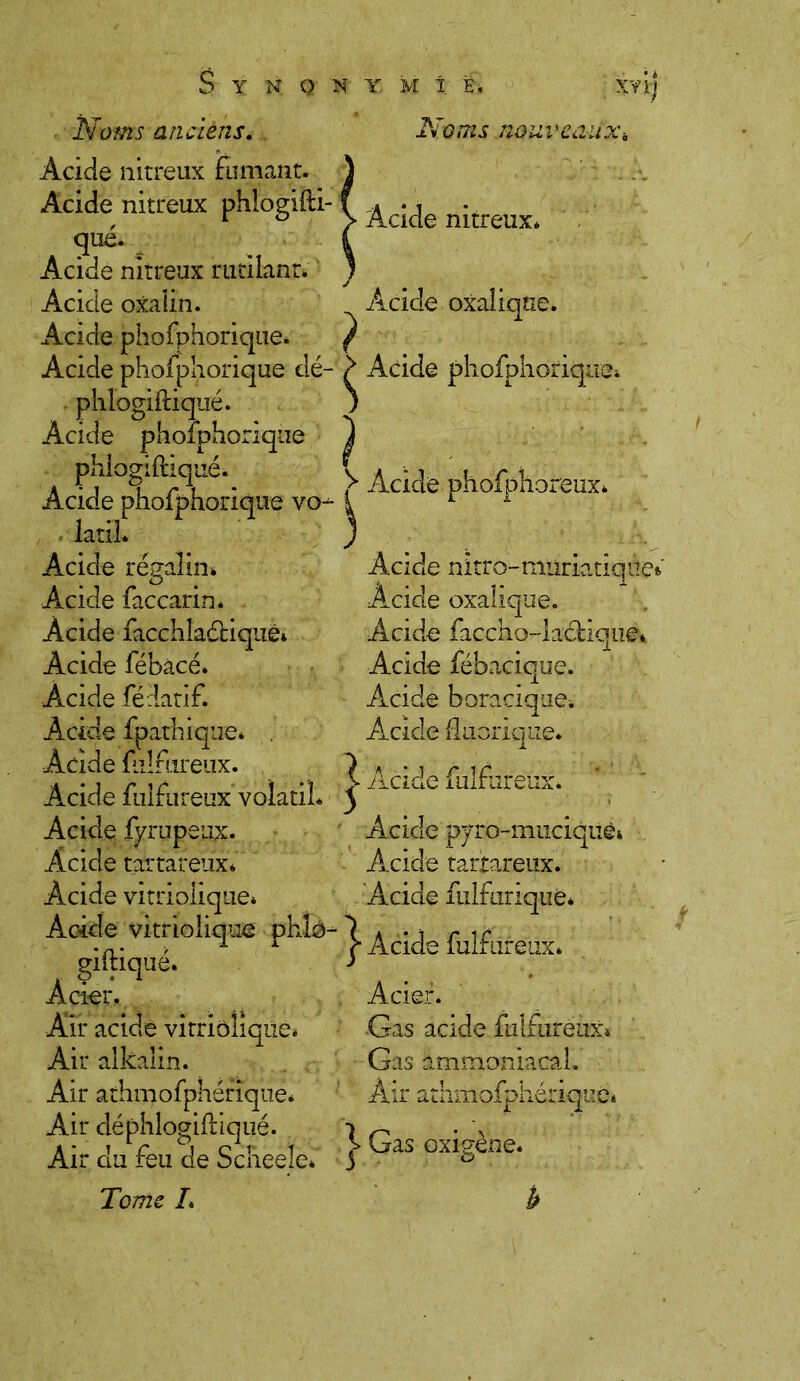 SYNONYMIE. xvij
Noms anciens. Noms nouveaux.
Acide nitreux fumant.
Acide nitreux phlogifti-
qué.
Acide nitreux rutilant.
Acide nitreux.
Acide oxalin. Acide oxalique.
Acide phofphorique.
Acide phofphorique dé-
phlogiftiqué.
Acide phofphorique.
Acide phofphorique
phlogiftiqué.
Acide phofphorique vo-
latil.
Acide phofphoreux.
Acide régalin. Acide nitro-muriatique.
Acide faccarin. Acide oxalique.
Acide facchlactique. Acide faccho-lactique.
Acide fébacé. Acide fébacique.
Acide fédatif. Acide boracique.
Acide fpathique. Acide fluorique.
Acide fulfureux.
Acide fulfureux volatil.
Acide fulfureux.
Acide fyrupeux. Acide pyro-mucique.
Acide tartareux. Acide tartareux.
Acide vitriolique. Acide fulfurique.
Acide vitriolique phlo-
giftiqué.
Acide fulfureux.
Acier. Acier.
Air acide vitriolique. Gas acide fulfureux.
Air alkalin. Gas ammoniacal.
Air athmofphérique. Air athmofphérique.
Air déphlogiftiqué.
Air du feu de Scheele.
Gas oxigène.
Tome I. b